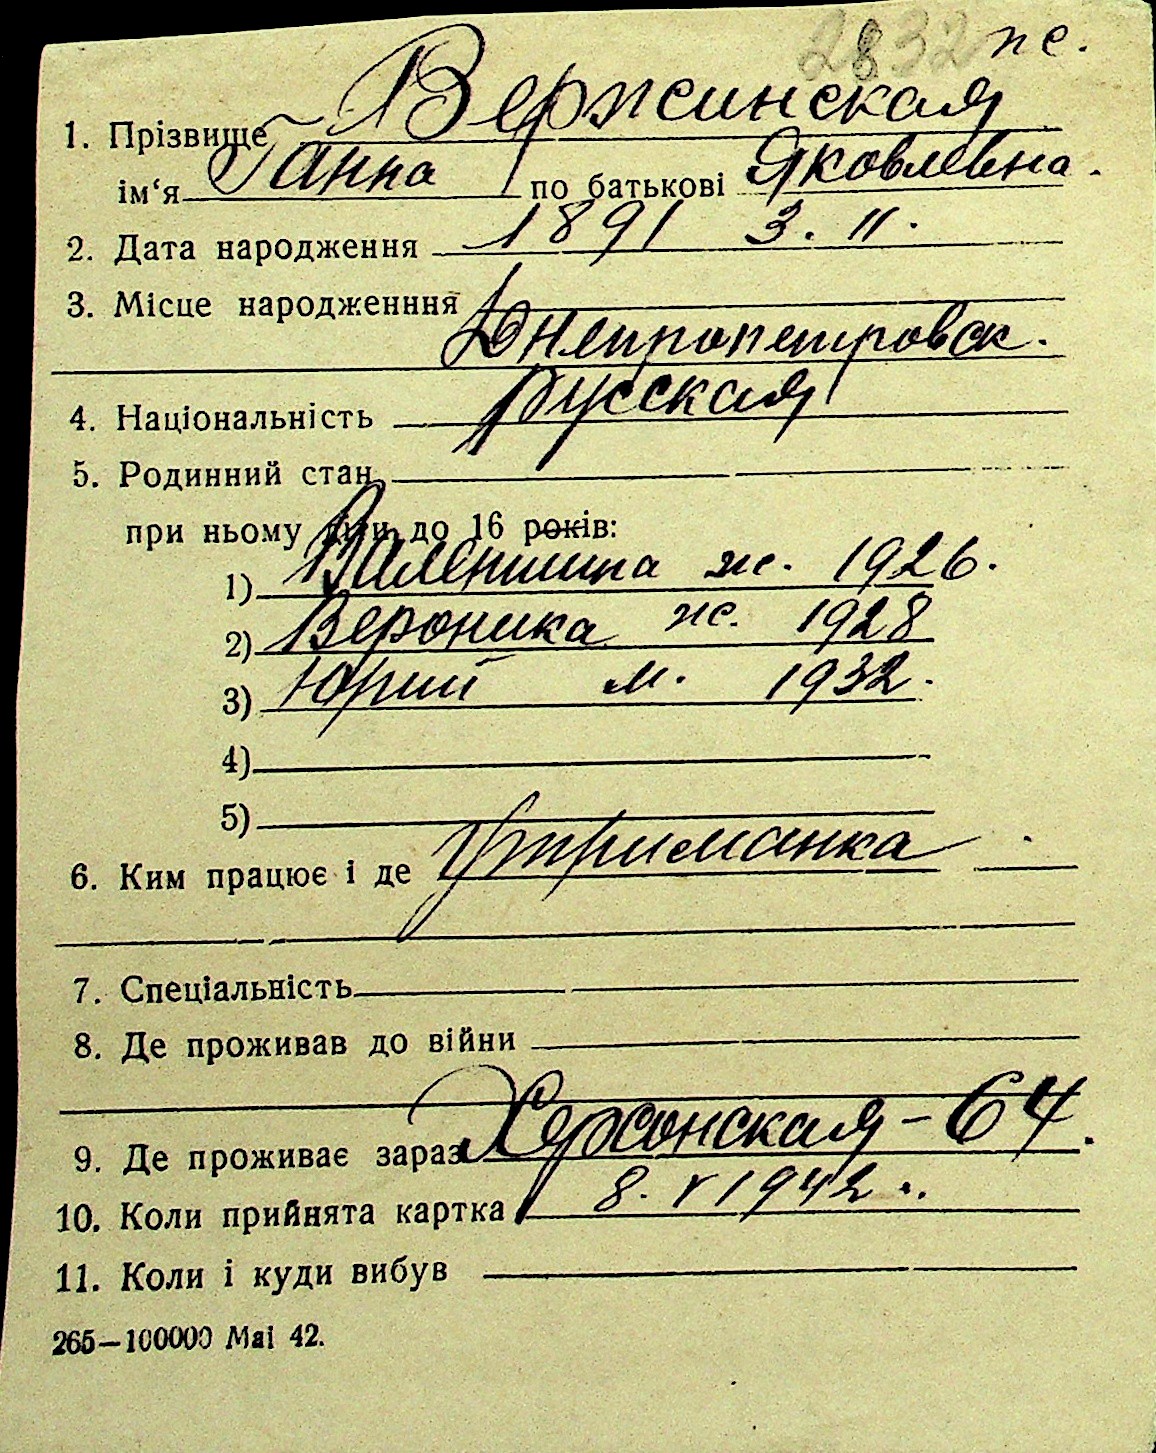 2832 ж.
1. Прізвище Вержинская
ім‘я Ганна по батькові Яковлевна.
2. Дата народження 1891 3. 11.
3. Місце народженння
Днепропетровск.
4. Національність русская
5. Родинний стан
при ньому діти до 16 років:
1) Валентина ж. 1926.
2) Вероника ж. 1928
3) Юрий м. 1932.
4)
5)
6. Ким працює і де Утриманка
7. Спеціальність
8. Де проживав до війни
9. Де проживає зараз Херсонская – 64.
10. Коли прийнята картка 8. V 1942 г.
11. Коли і куди вибув
265—100000 Mai 42.